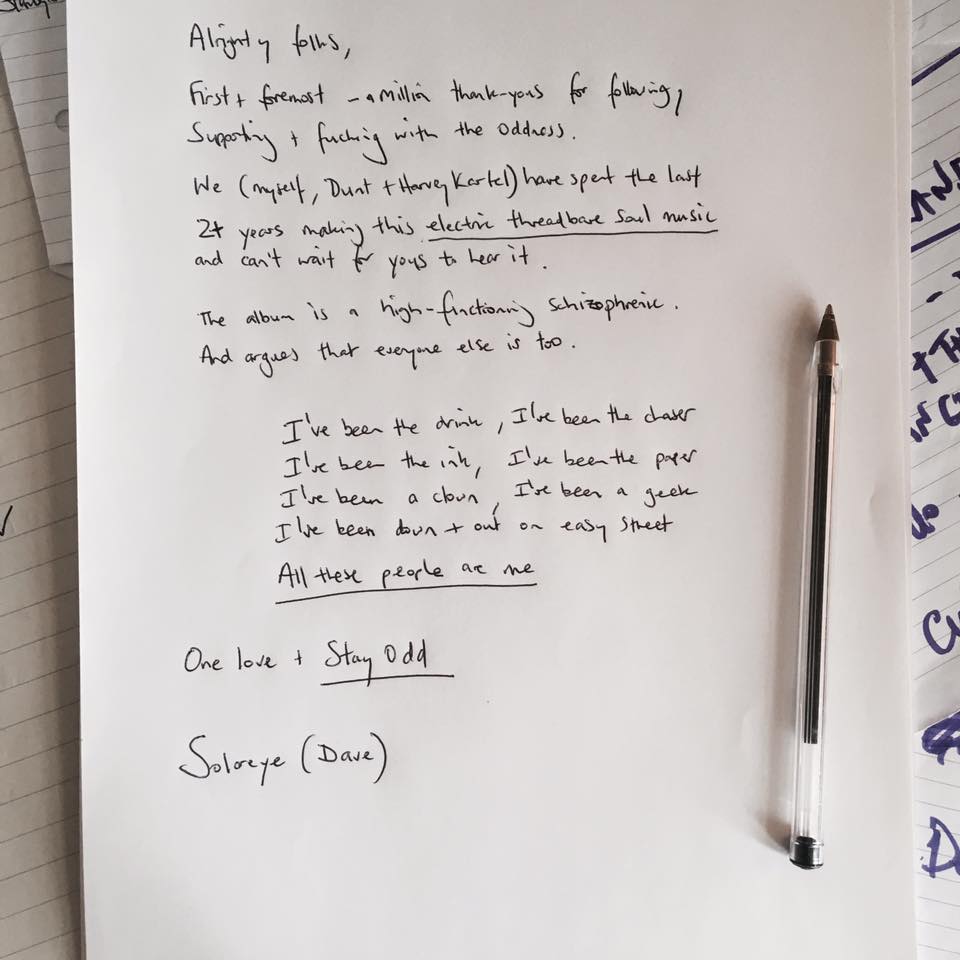 Alrighty folks,
First + foremost - a million thank-yous for following,
Supporting + fucking with the oddness.
We (myself, Dunt + Harvey Kartel) have spent the last
2+ years making this electric threadbare soul music
and can't wait for yous to hear it.
The album is a high-functioning schizophrenic.
And argues that everyone else is too.
I've been the drink, I've been the chaser
I've been the ink, I've been the paper
I've been a clown, I've been a geek
I've been down + out on easy street
All these people are me
One love + Stay Odd
Solareye (Dave)